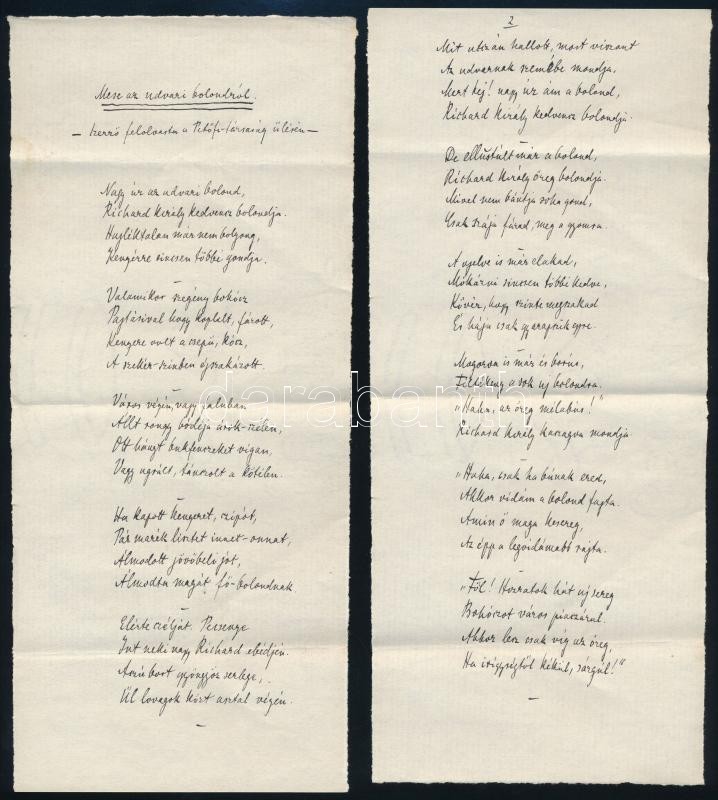 Mese az udvari bolondról.
— szerző felolvasta a Petőfi-társaság ülésén —
Nagy úr az udvari bolond,
Richard király kedvencz bolondja.
Hajléktalan már nem bolyong,
Kenyérre sincsen többé gondja.
—
Valamikor szegény bohócz
Pajtásival hogy koplalt, fázott,
Kenyere volt a csepű, kócz,
A szekér-szinben éjszakázott.
—
Város végén, vagy faluban
Állt rongy bódéja árok-szélen,
Ott hányt bukfenczeket vigan,
Vagy ugrált, tánczolt a kötélen.
—
Ha kapott kenyeret, czipót,
Pár marék lisztet innet-onnat,
Álmodott jövőbeli jót,
Álmodta magát fő-bolondnak
—
Elérte czélját.
Jut neki nagy Richard ebédjén.
Aszúbort gyöngyöz serlege,
Ül lovagok közt asztal végén.
—
2
Mit utczán hallott, most viszont
Az udvarnak szemébe mondja,
Mert hej! nagy úr ám a bolond,
Richard Király kedvencz bolondja.
—
De ellustúlt már a bolond,
Richard Király öreg bolondja.
Mivel nem bántja soha gond,
Csak szája fárad, meg a gyomra.
—
A nyelve is már elakad,
Mókázni sincsen többé kedve,
Kövér, hogy szinte megszakad
És hája csak gyarapszik egyre.
—
Mogorva is már és borús,
Féltékeny a sok uj bolondra.
"Haha, az öreg mélabús!"
Richard Király kaczagva mondja
—
"Haha, csak ha búnak ered,
Akkor vidám a bolond fajta.
Amin ő maga kesereg,
Az épp a legvidámabb rajta.
—
"Föl! Hozzatok hát uj sereg
Bohóczot város piaczárul.
Akkor lesz csak víg az öreg,
Ha irígységtől kékül, sárgúl!"
—
darabanth.com